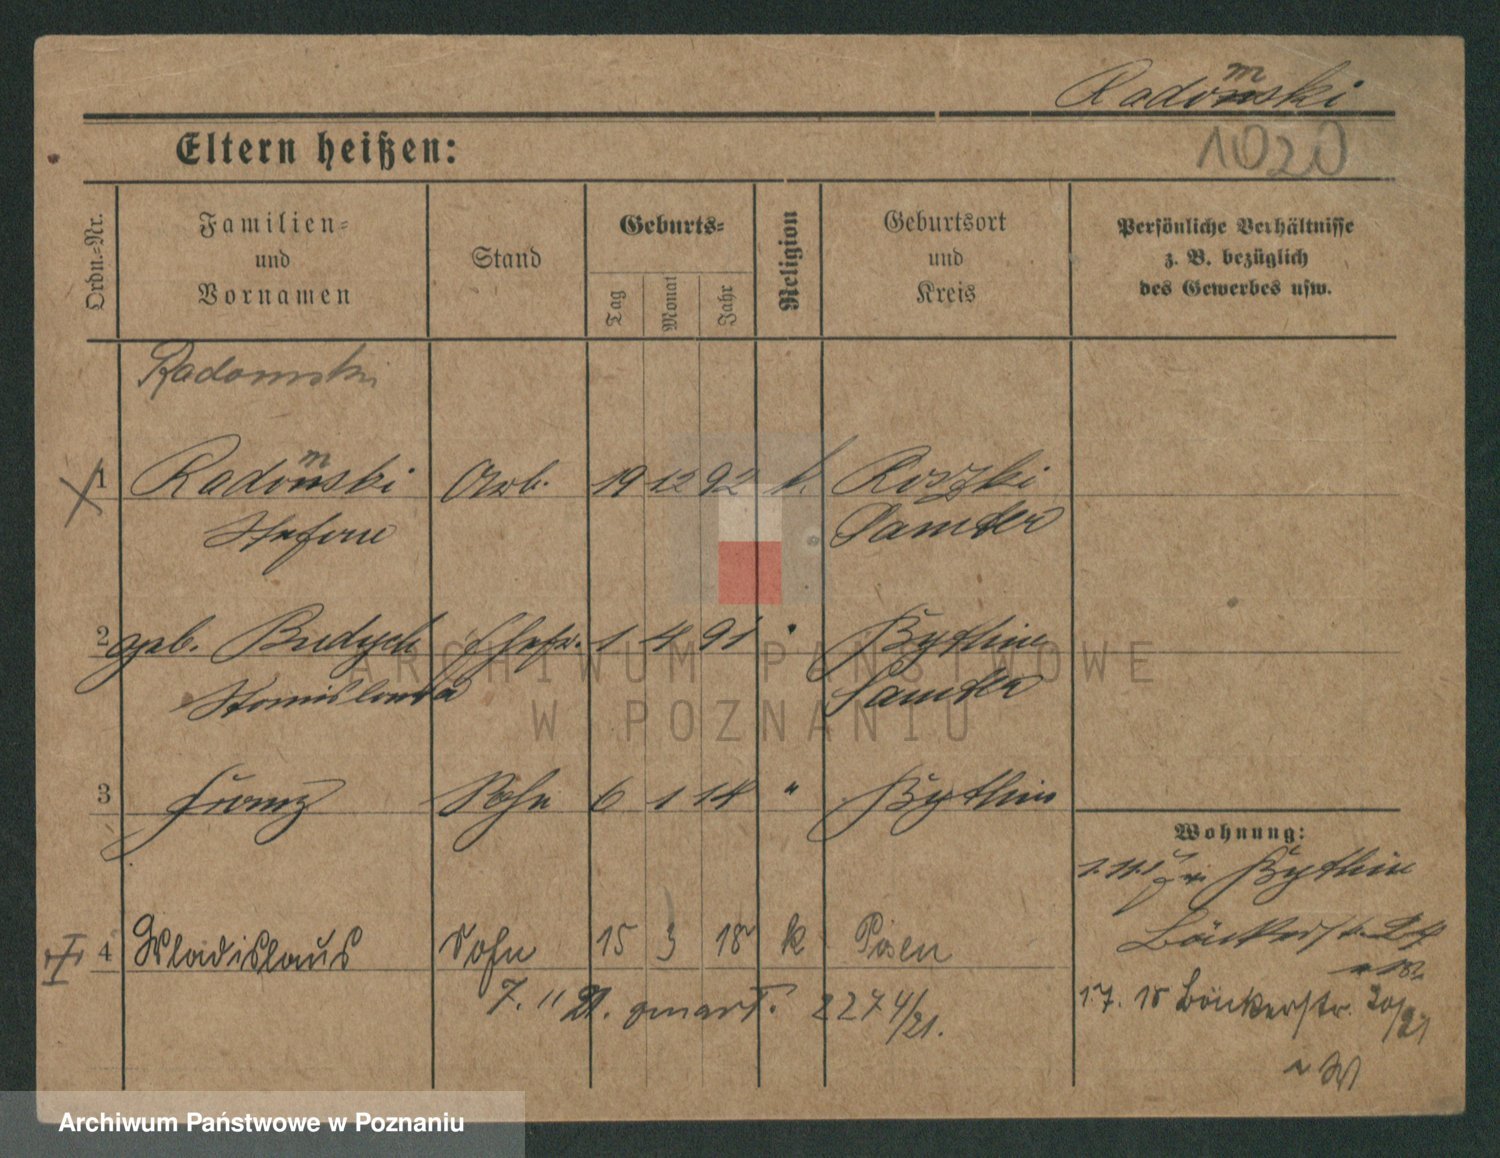 Radomski
1020
Eltern heißen:
Ordn.-Nr.
Familien-
und
Vornamen
Stand
Geburts-
Tag
Monat
Jahr
Religion
Geburtsort
und
Kreis
Persönliche Verhältnisse
z. B. bezüglich
des Gewerbes usw.
Radomski
1 Radomski Arb. 19 12 92 k. Roszki
Stefan Samter
2 geb. Budych Ehefr. 1 4 91 " Bythin
Stanislawa Samter
3 Franz Sohn 6 1 14 " Bythin
Wohnung:
Bythin
Bäckerstr. 24
4 Wladislaus Sohn 15 3 18 k Posen
7. 11 21. zmarł. 2274/21.
17. 18 Bäckerstr. 20/21
ARCHIWUM PAŃSTWOWE
W POZNANIU
Archiwum Państwowe w Poznaniu